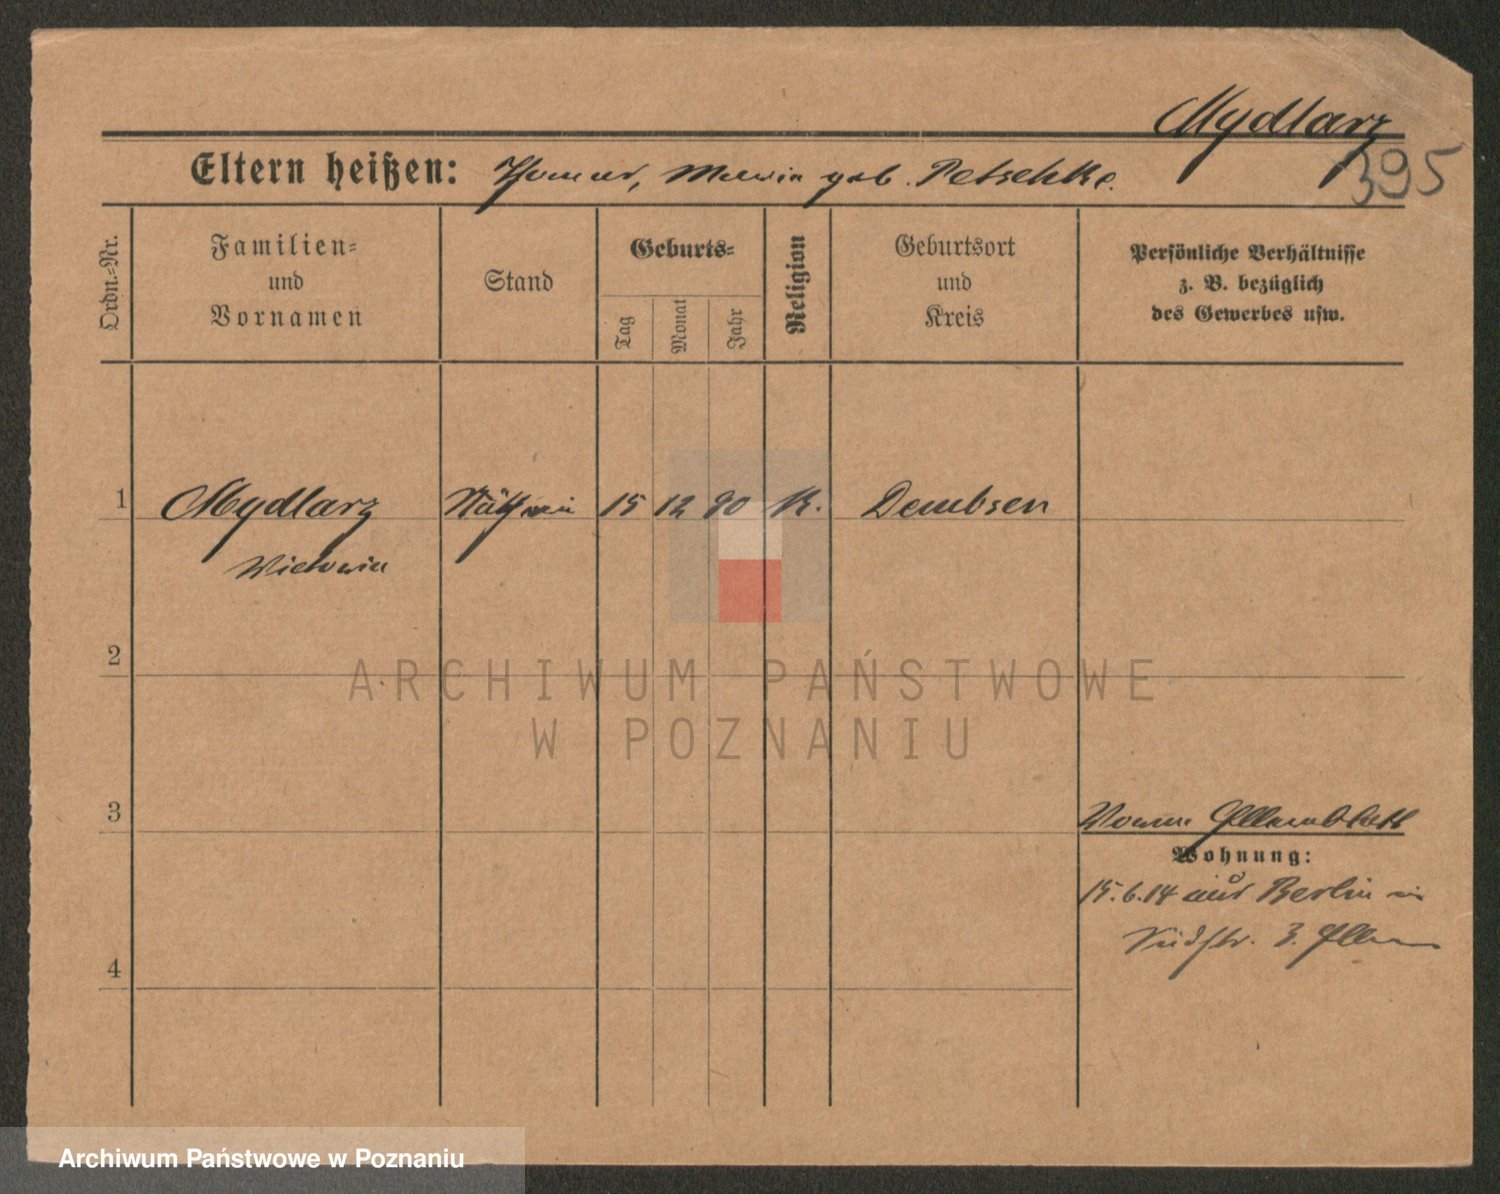 Mydlarz
395
Eltern heißen: Thomas, Maria geb. Petschke.
Ordn.=Nr.
Familien=
und
Vornamen
Stand
Geburts=
Tag
Monat
Jahr
Religion
Geburtsort
und
Kreis
Persönliche Verhältnisse
z. B. bezüglich
des Gewerbes usw.
1 Mydlarz Näherin 15 12 90 K. Dembsen
Victoria
2
ARCHIWUM PAŃSTWOWE
W POZNANIU
3
Wohnung:
15.6.14 aus Berlin in
Südstr. 3.
4
Archiwum Państwowe w Poznaniu